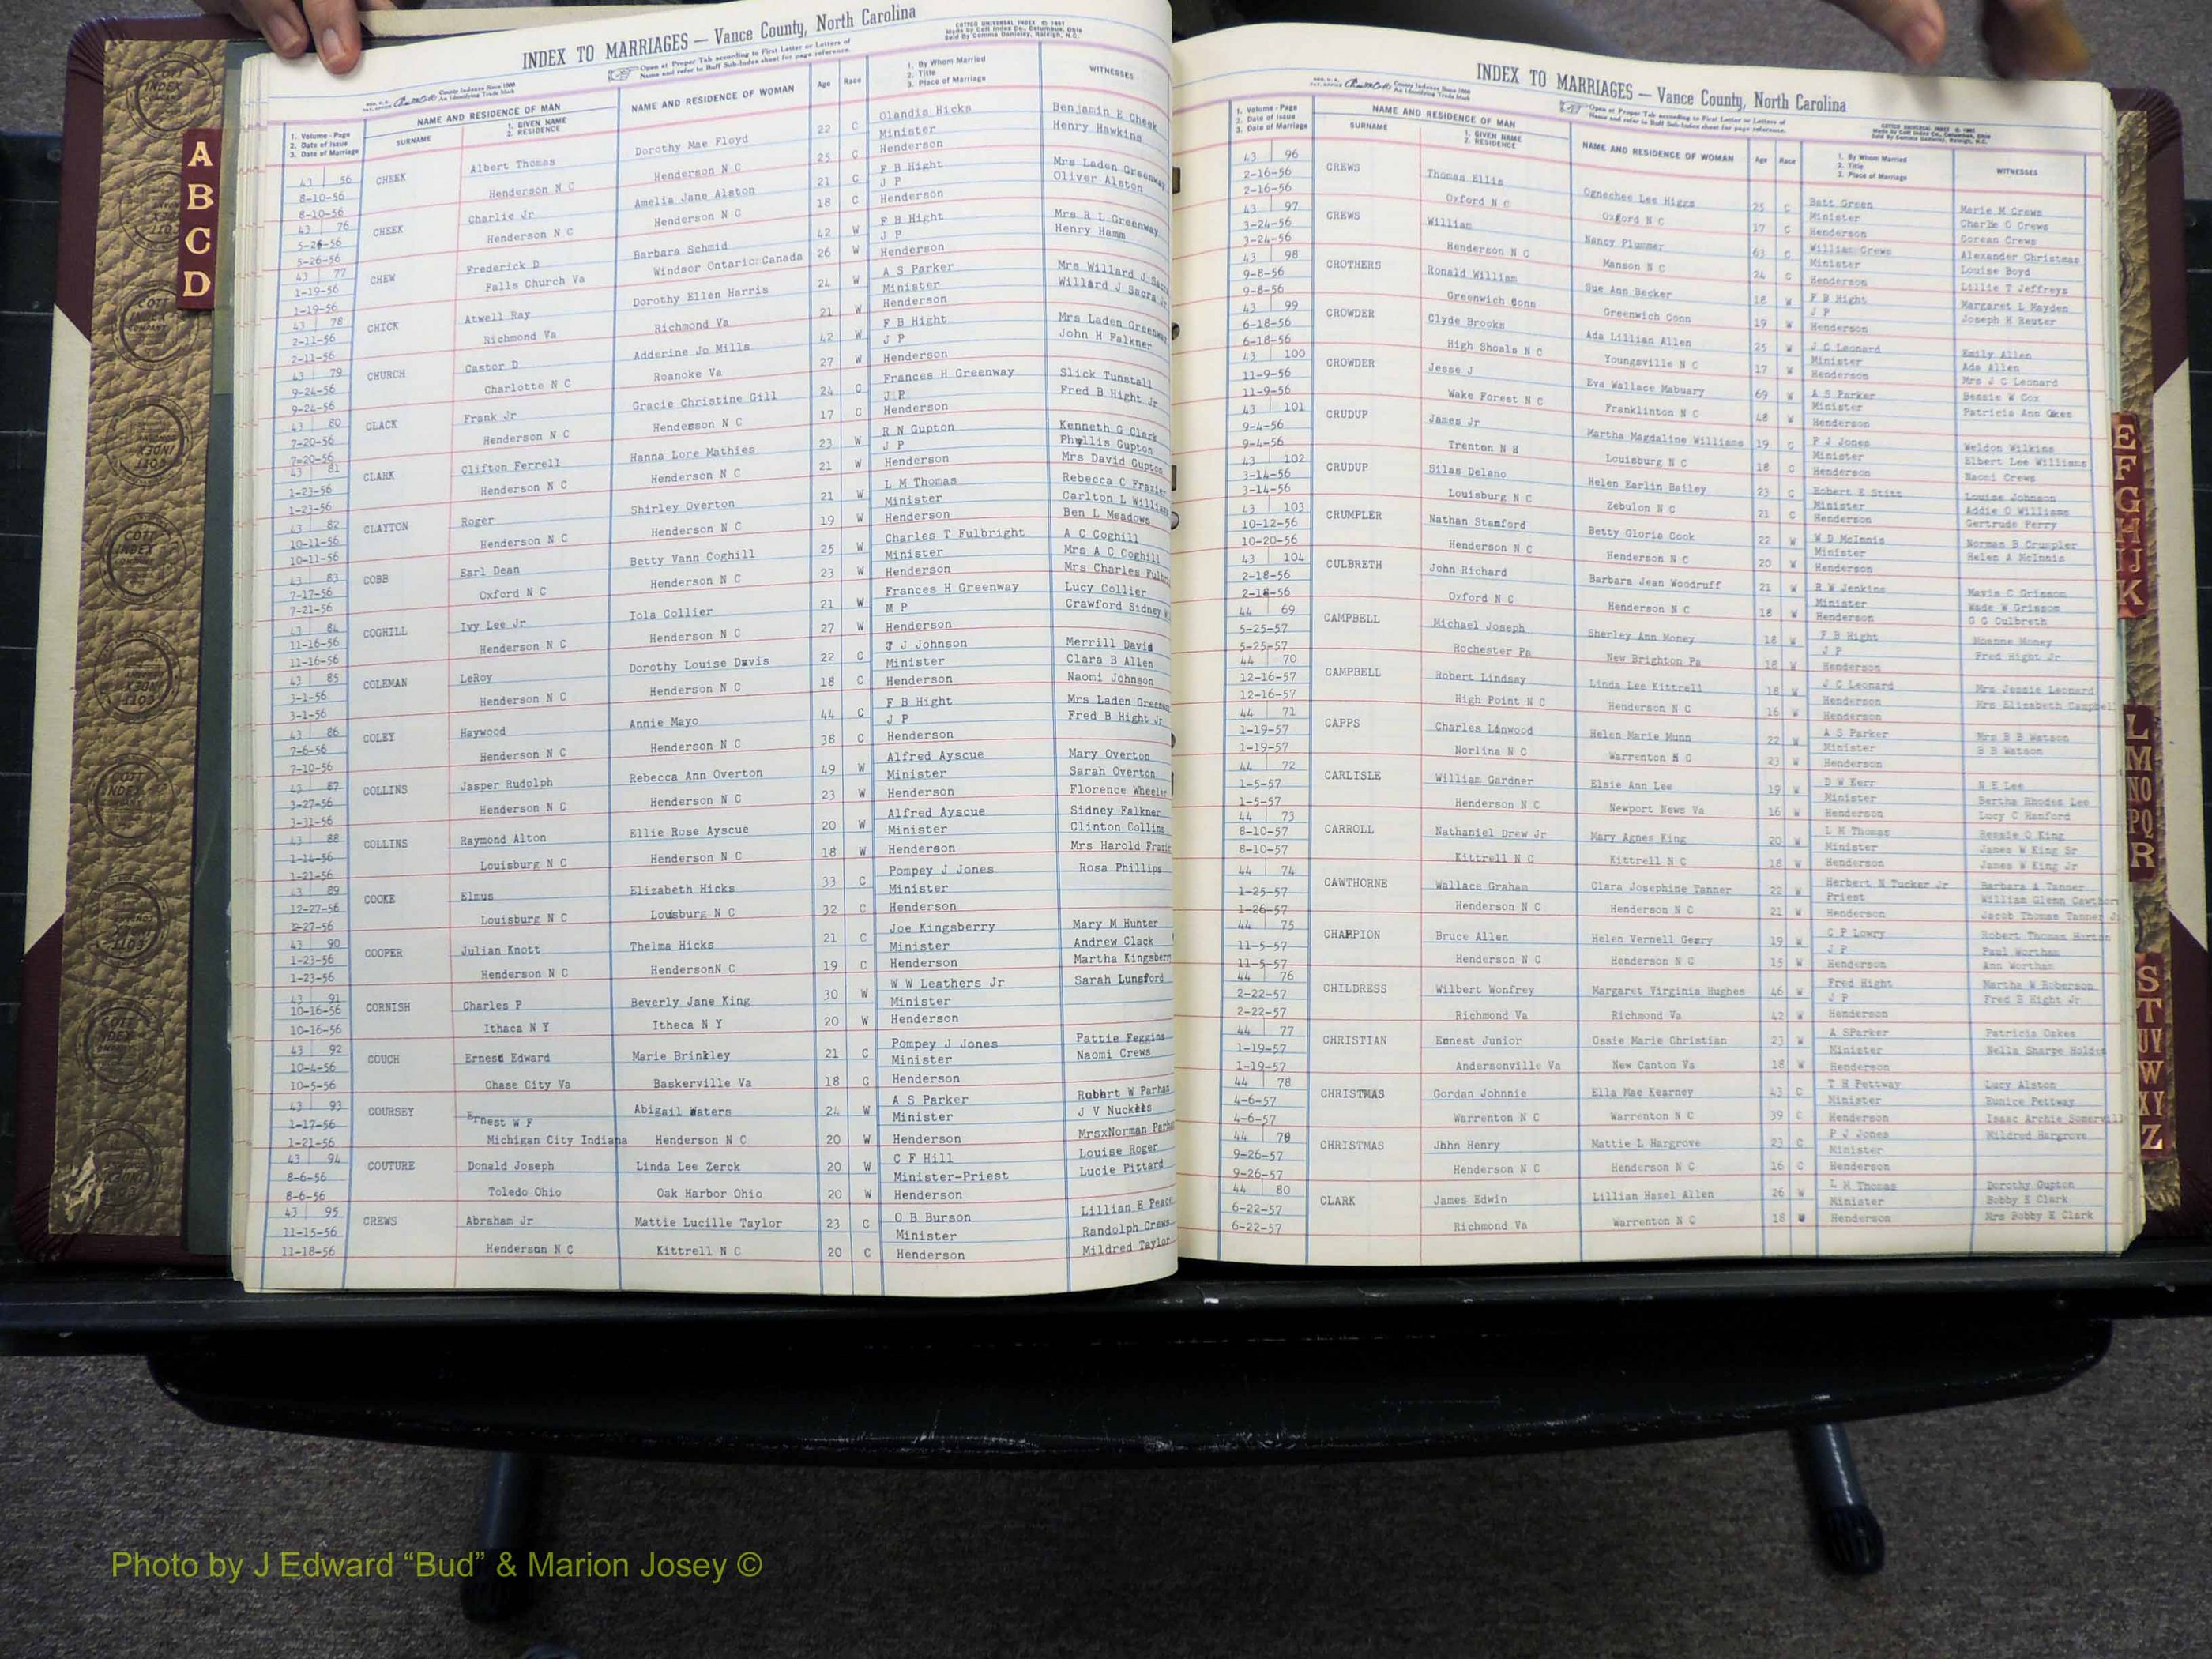 INDEX TO MARRIAGES — Vance County, North Carolina
COTTCO UNIVERSAL INDEX © 1961
Open at Proper Tab according to First Letter or Letters of
Name and refer to Buff Sub-Index sheet for page reference.
1. Volume - Page
2. Date of Issue
3. Date of Marriage
NAME AND RESIDENCE OF MAN
SURNAME
1. GIVEN NAME
2. RESIDENCE
NAME AND RESIDENCE OF WOMAN
Age Race
1. By Whom Married
2. Title
3. Place of Marriage
WITNESSES
43 56 CHEEK Albert Thomas Dorothy Mae Floyd 22 C Olandis Hicks Benjamin E Cheek
8-10-56 Henderson N C Henderson N C 25 C Minister Henry Hawkins
8-10-56 Henderson
43 76 CHEEK Charlie Jr Amelia Jane Alston 21 C F B Hight Mrs Laden Greenway
5-26-56 Henderson N C Henderson N C 18 C J P Oliver Alston
5-26-56 Henderson
43 77 CHEW Frederick D Barbara Schmid 42 W F B Hight Mrs R L Greenway
1-19-56 Falls Church Va Windsor Ontario Canada 26 W J P Henry Hamm
1-19-56 Henderson
43 78 CHICK Atwell Ray Dorothy Ellen Harris 24 W A S Parker Mrs Willard J
2-11-56 Richmond Va Richmond Va 21 W Minister Willard J Sacra Jr
2-11-56 Henderson
43 79 CHURCH Castor D Adderine Jo Mills 42 W F B Hight Mrs Laden
9-24-56 Charlotte N C Roanoke Va 27 W J P John H Falkner
9-24-56 Henderson
43 80 CLACK Frank Jr Gracie Christine Gill 24 C Frances H Greenway Slick Tunstall
7-20-56 Henderson N C Henderson N C 17 C J P Fred B Hight Jr
7-20-56 Henderson
43 81 CLARK Clifton Ferrell Hanna Lore Mathies 23 W R N Gupton Kenneth G Clark
1-23-56 Henderson N C Henderson N C 21 W J P Phyllis Gupton
1-23-56 Henderson Mrs David Gupton
43 82 CLAYTON Roger Shirley Overton 21 W L M Thomas Rebecca C Frazier
10-11-56 Henderson N C Henderson N C 19 W Minister Carlton L
10-11-56 Henderson Ben L Meadows
43 83 COBB Earl Dean Betty Vann Coghill 25 W Charles T Fulbright A C Coghill
7-17-56 Oxford N C Henderson N C 23 W Minister Mrs A C Coghill
7-21-56 Henderson Mrs Charles
43 84 COGHILL Ivy Lee Jr Iola Collier 21 W Frances H Greenway Lucy Collier
11-16-56 Henderson N C Henderson N C 27 W M P Crawford Sidney
11-16-56 Henderson
43 85 COLEMAN LeRoy Dorothy Louise Davis 22 C T J Johnson Merrill David
3-1-56 Henderson N C Henderson N C 18 C Minister Clara B Allen
3-1-56 Henderson Naomi Johnson
43 86 COLEY Haywood Annie Mayo 44 C F B Hight Mrs Laden
7-6-56 Henderson N C Henderson N C 38 C J P Fred B Hight Jr
7-10-56 Henderson
43 87 COLLINS Jasper Rudolph Rebecca Ann Overton 49 W Alfred Ayscue Mary Overton
3-27-56 Henderson N C Henderson N C 23 W Minister Sarah Overton
3-31-56 Henderson Florence Wheeler
43 88 COLLINS Raymond Alton Ellie Rose Ayscue 20 W Alfred Ayscue Sidney Falkner
1-14-56 Louisburg N C Henderson N C 18 W Minister Clinton Collins
1-21-56 Henderson Mrs Harold
43 89 COOKE Elmus Elizabeth Hicks 33 C Pompey J Jones Rosa Phillips
12-27-56 Louisburg N C Louisburg N C 32 C Minister
12-27-56 Henderson
43 90 COOPER Julian Knott Thelma Hicks 21 C Joe Kingsberry Mary M Hunter
1-23-56 Henderson N C HendersonN C 19 C Minister Andrew Clack
1-23-56 Henderson Martha Kingsberry
43 91 CORNISH Charles P Beverly Jane King 30 W W W Leathers Jr Sarah Lunsford
10-16-56 Ithaca N Y Itheca N Y 20 W Minister
10-16-56 Henderson
43 92 COUCH Ernest Edward Marie Brinkley 21 C Pompey J Jones Pattie Feggins
10-4-56 Chase City Va Baskerville Va 18 C Minister Naomi Crews
10-5-56 Henderson
43 93 COURSEY Ernest W F Abigail Waters 24 W A S Parker Robert W Parham
1-17-56 Michigan City Indiana Henderson N C 20 W Minister J V Nuckles
1-21-56 Henderson MrsxNorman
43 94 COUTURE Donald Joseph Linda Lee Zerck 20 W C F Hill Louise Roger
8-6-56 Toledo Ohio Oak Harbor Ohio 20 W Minister-Priest Lucie Pittard
8-6-56 Henderson
43 95 CREWS Abraham Jr Mattie Lucille Taylor 23 C O B Burson Lillian E
11-15-56 Henderson N C Kittrell N C 20 C Minister Randolph Crews
11-18-56 Henderson Mildred Taylor
INDEX TO MARRIAGES — Vance County, North Carolina
Open at Proper Tab according to First Letter or Letters of
Name and refer to Buff Sub-Index sheet for page reference.
1. Volume - Page
2. Date of Issue
3. Date of Marriage
NAME AND RESIDENCE OF MAN
SURNAME
1. GIVEN NAME
2. RESIDENCE
NAME AND RESIDENCE OF WOMAN
Age Race
1. By Whom Married
2. Title
3. Place of Marriage
WITNESSES
43 96 CREWS Thomas Ellis Ognechee Lee Higgs 25 C Batt Green Marie M Crews
2-16-56 Oxford N C Oxford N C 17 C Minister Charlie O Crews
2-16-56 Henderson Corean Crews
43 97 CREWS William Nancy Plummer 63 C William Crews Alexander Christmas
3-24-56 Henderson N C Manson N C 24 C Minister Louise Boyd
3-24-56 Henderson Lillie T Jeffreys
43 98 CROTHERS Ronald William Sue Ann Becker 18 W F B Hight Margaret L Hayden
9-8-56 Greenwich Conn Greenwich Conn 19 W J P Joseph H Reuter
9-8-56 Henderson
43 99 CROWDER Clyde Brooks Ada Lillian Allen 25 W J C Leonard Emily Allen
6-18-56 High Shoals N C Youngsville N C 17 W Minister Ada Allen
6-18-56 Henderson Mrs J C Leonard
43 100 CROWDER Jesse J Eva Wallace Mabuary 69 W A S Parker Bessie W Cox
11-9-56 Wake Forest N C Franklinton N C 48 W Minister Patricia Ann Oakes
11-9-56 Henderson
43 101 CRUDUP James Jr Martha Magdaline Williams 19 C P J Jones Weldon Wilkins
9-4-56 Trenton N H Louisburg N C 18 C Minister Elbert Lee Williams
9-4-56 Henderson Naomi Crews
43 102 CRUDUP Silas Delano Helen Earlin Bailey 23 C Robert E Stitt Louise Johnson
3-14-56 Louisburg N C Zebulon N C 21 C Minister Addie O Williams
3-14-56 Henderson Gertrude Perry
43 103 CRUMPLER Nathan Stanford Betty Gloria Cook 22 W W D McInnis Norman B Crumpler
10-12-56 Henderson N C Henderson N C 20 W Minister Helen A McInnis
10-20-56 Henderson
43 104 CULBRETH John Richard Barbara Jean Woodruff 21 W R W Jenkins Mavis C Grissom
2-18-56 Oxford N C Henderson N C 18 W Minister Wade W Grissom
2-18-56 Henderson G G Culbreth
44 69 CAMPBELL Michael Joseph Sherley Ann Money 18 W F B Hight Money
5-25-57 Rochester Pa New Brighton Pa 18 W J P Fred Hight Jr
5-25-57 Henderson
44 70 CAMPBELL Robert Lindsay Linda Lee Kittrell 18 W J C Leonard Mrs Jessie Leonard
12-16-57 High Point N C Henderson N C 16 W Henderson Mrs Elizabeth Campbell
12-16-57 Henderson
44 71 CAPPS Charles Linwood Helen Marie Munn 22 W A S Parker Mrs B B Watson
1-19-57 Norlina N C Warrenton N C 23 W Minister B B Watson
1-19-57 Henderson
44 72 CARLISLE William Gardner Elsie Ann Lee 19 W D W Kerr N E Lee
1-5-57 Henderson N C Newport News Va 16 W Minister Bertha Rhodes Lee
1-5-57 Henderson Lucy C Hanford
44 73 CARROLL Nathaniel Drew Jr Mary Agnes King 20 W L M Thomas Bessie O King
8-10-57 Kittrell N C Kittrell N C 18 W Minister James W King Sr
8-10-57 Henderson James W King Jr
44 74 CAWTHORNE Wallace Graham Clara Josephine Tanner 22 W Herbert N Tucker Jr Barbara A Tanner
1-25-57 Henderson N C Henderson N C 21 W Priest William Glenn
1-26-57 Henderson Jacob Thomas Tanner
44 75 CHAMPION Bruce Allen Helen Vernell Geary 19 W C P Lowry Robert Thomas Horton
11-5-57 Henderson N C Henderson N C 15 W J P Paul Wortham
11-5-57 Henderson Ann Wortham
44 76 CHILDRESS Wilbert Wonfrey Margaret Virginia Hughes 46 W Fred Hight Martha W Roberson
2-22-57 Richmond Va Richmond Va 42 W J P Fred B Hight Jr
2-22-57 Henderson
44 77 CHRISTIAN Ernest Junior Ossie Marie Christian 23 W A SParker Patricia Oakes
1-19-57 Andersonville Va New Canton Va 18 W Minister Nella Sharpe
1-19-57 Henderson
44 78 CHRISTMAS Gordan Johnnie Ella Mae Kearney 43 C T H Pettway Lucy Alston
4-6-57 Warrenton N C Warrenton N C 39 C Minister Eunice Pettway
4-6-57 Henderson Isaac Archie
44 79 CHRISTMAS John Henry Mattie L Hargrove 23 C P J Jones Mildred Hargrove
9-26-57 Henderson N C Henderson N C 16 C Minister
9-26-57 Henderson
44 80 CLARK James Edwin Lillian Hazel Allen 26 W L M Thomas Dorothy Gupton
6-22-57 Richmond Va Warrenton N C 18 W Minister Bobby E Clark
6-22-57 Henderson Mrs Bobby E Clark
A
B
C
D
E
F
G
H
IJ
K
L
M
NO
PQ
R
S
T
UV
W
XY
Z
Photo by J Edward “Bud” & Marion Josey ©